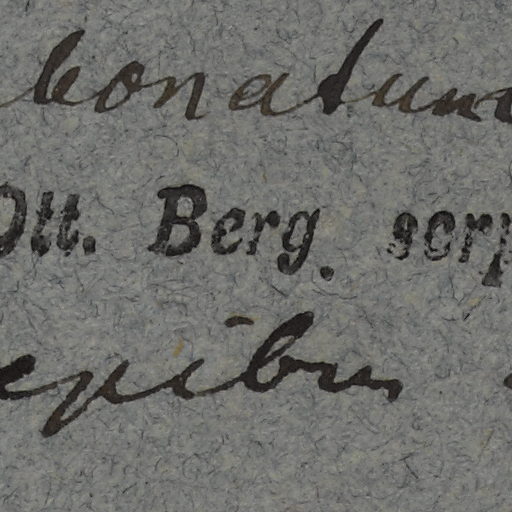 bonatum
Ott. Berg. scrp
epibus